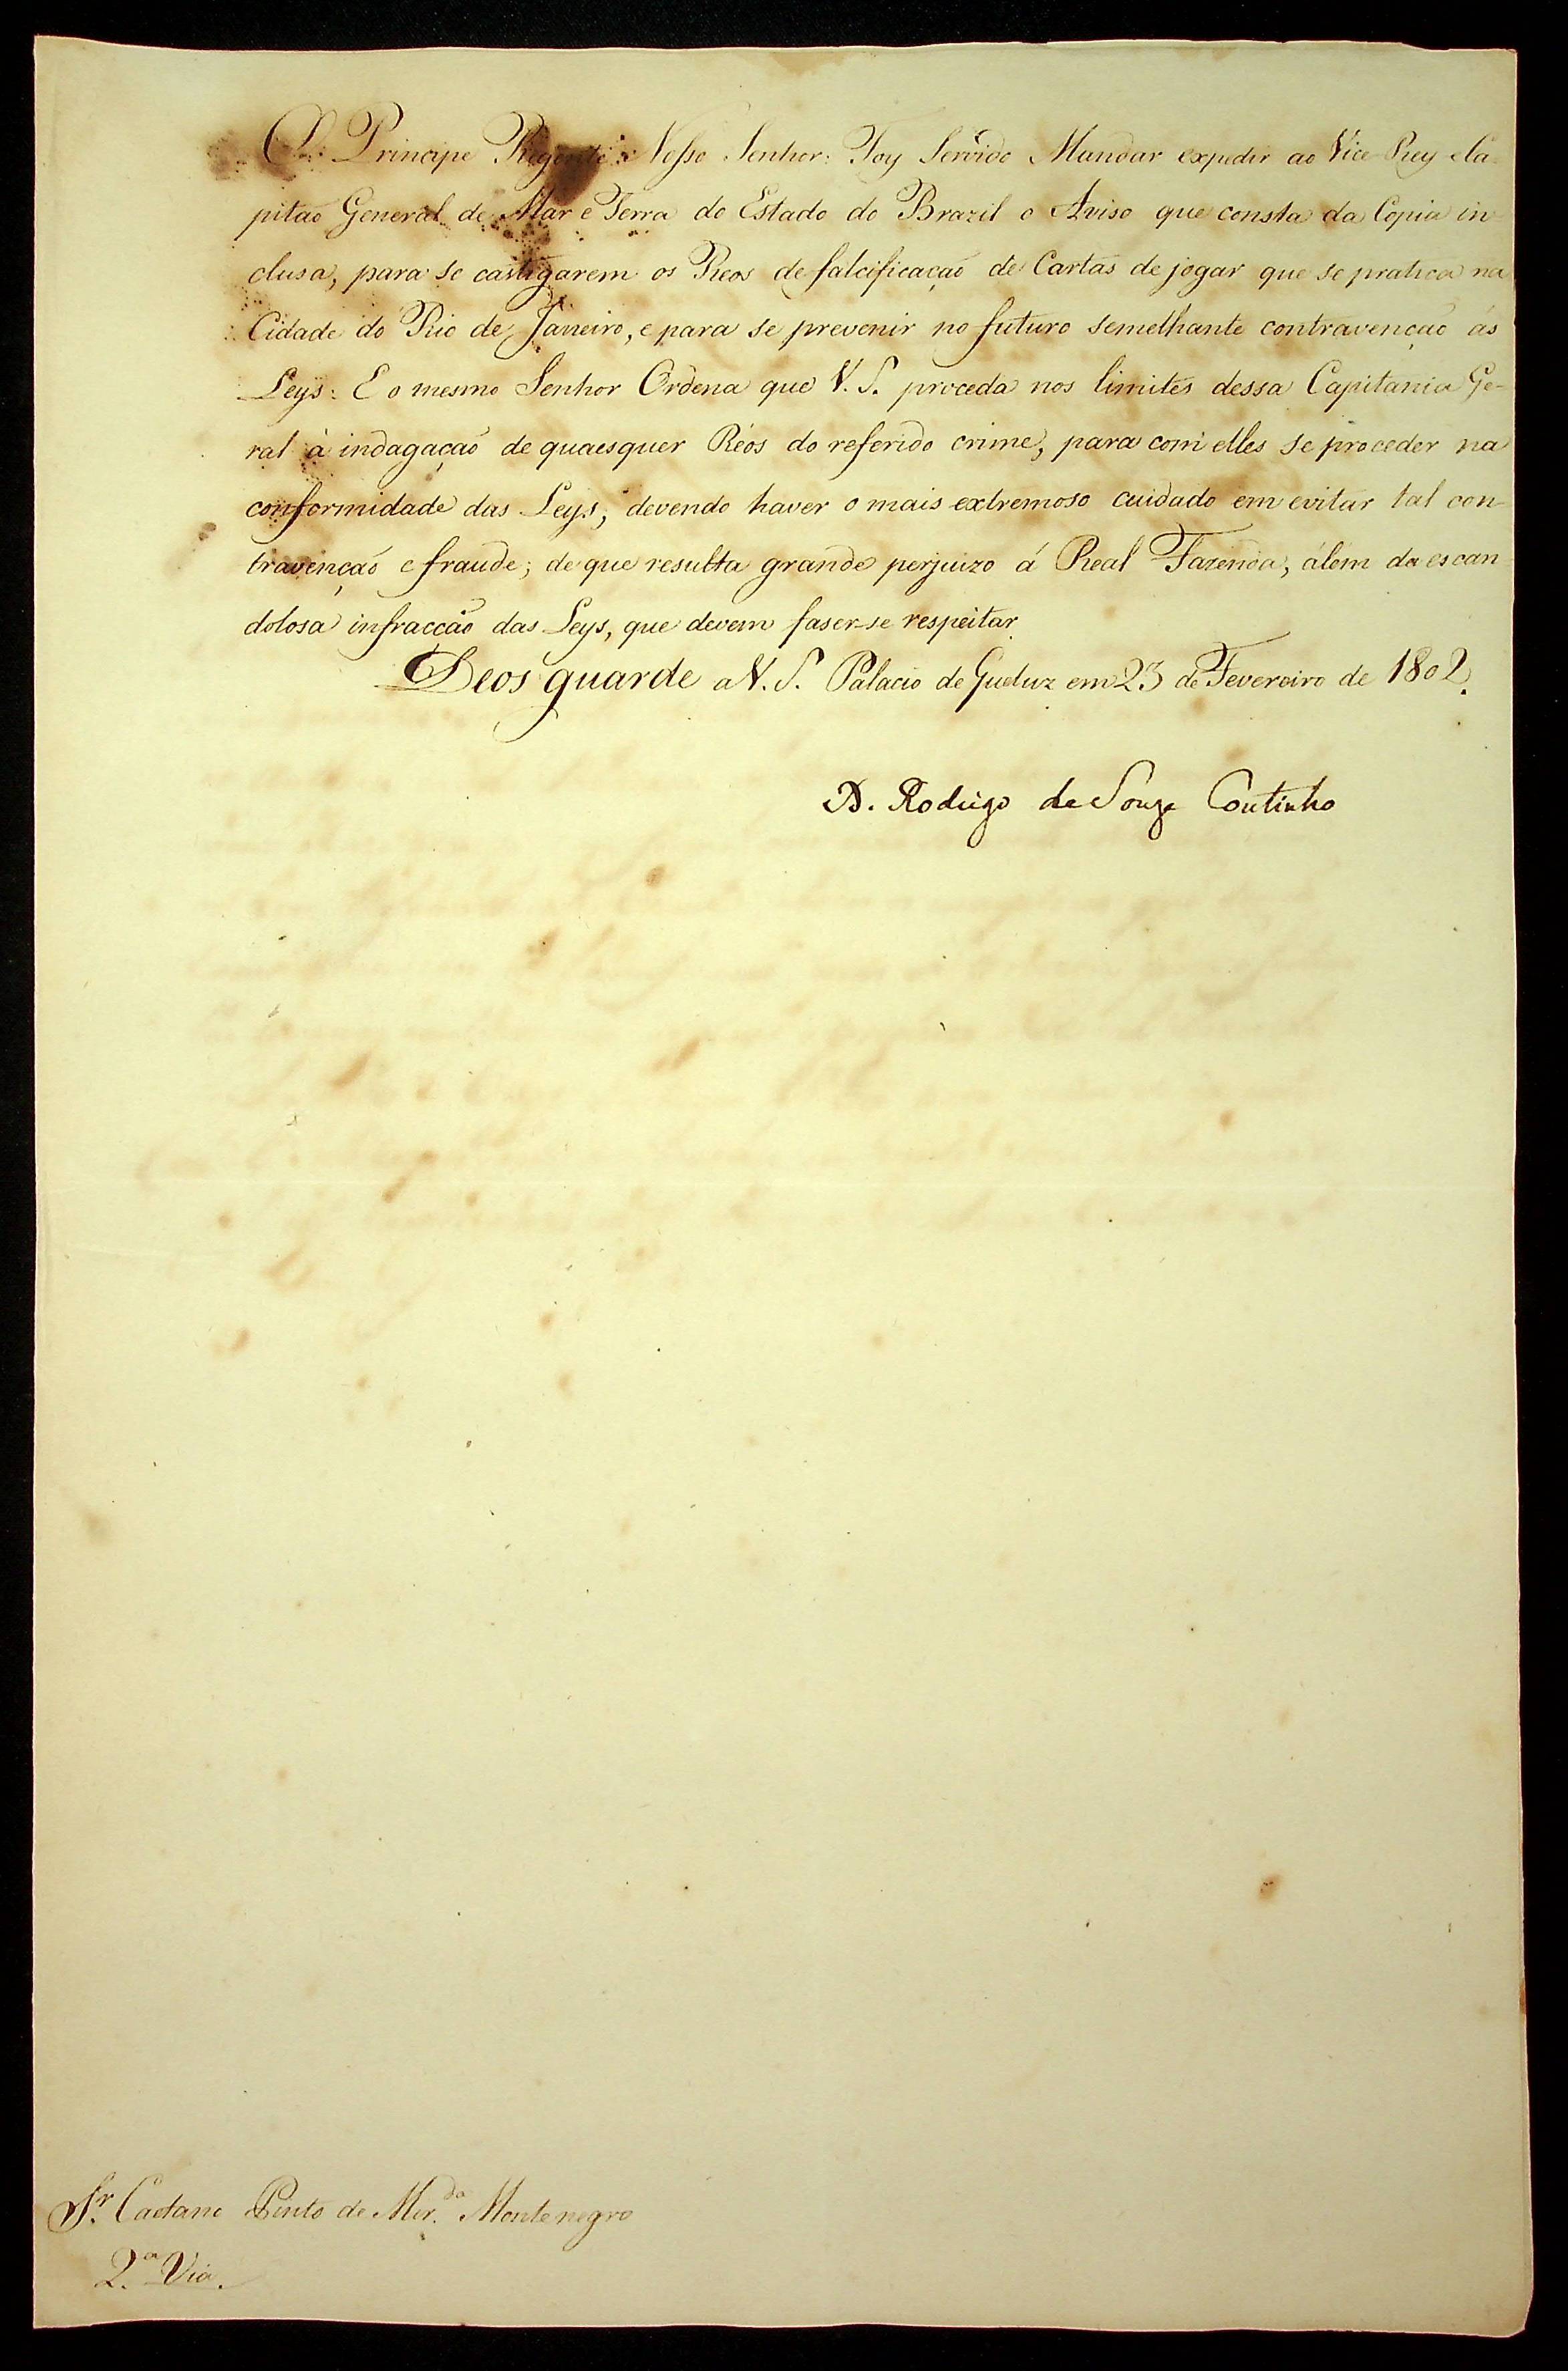 O Principe Regente Nosso Senhor: Foy Servido Mandar expedir ao Vice-Rey e Ca-
pitaõ General de Mar e Terra do Estado do Brazil o Aviso que consta da Copia in-
clusa, para se castigarem os Reos de falcificaçaõ de Cartas de jogar que se pratica na
Cidade do Rio de Janeiro, e para se prevenir no futuro semelhante contravençaõ ás
Leys: E o mesmo Senhor Ordena que V. S. proceda nos limites dessa Capitania Ge-
ral á indagaçaõ de quaesquer Réos do referido crime, para com elles se proceder na
conformidade das Leys, devendo haver o mais extremoso cuidado em evitar tal con-
travençaõ e fraude; de que resulta grande perjuizo á Real Fazenda, álem da escan-
dolosa infracçaõ das Leys, que devem faser-se respeitar.
Deos guarde a V. S. Palacio de Queluz em 23 de Fevereiro de 1802.
D. Rodrigo de Souza Coutinho
Sr. Caetano Pinto de Mir.da Montenegro
2.a Via.